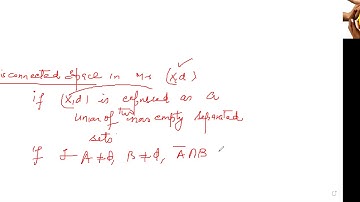 isconnected space in m.s (X,d)
if (X,d) is expressed as a
union of two non empty separated
sets
if ∃ A ≠ φ, B ≠ φ, A̅ ∩ B